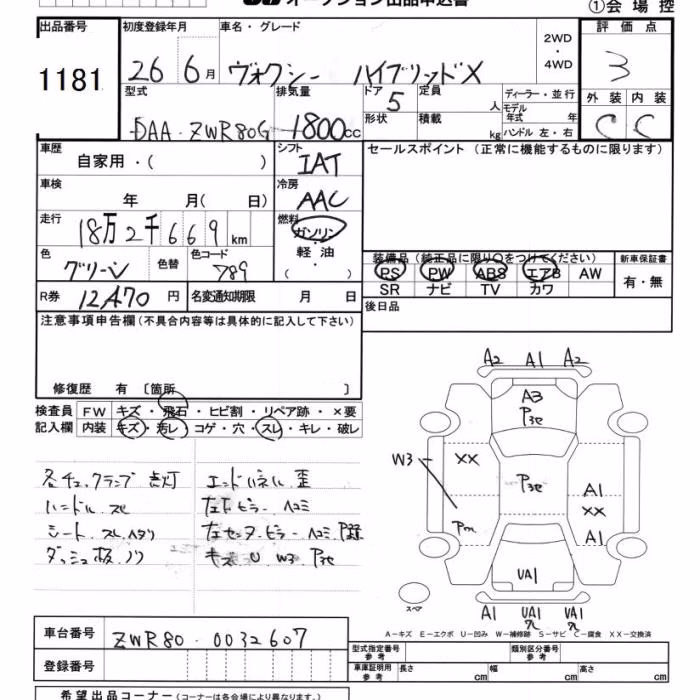 オークション出品申込書
①会場控
出品番号 初度登録年月 車名・グレード 評価点
1181
26 6月 ヴォクシー ハイブリッドX
2WD
・
4WD
3
型式 排気量 ドア 定員 ディーラー・並行 外装 内装
DAA-ZWR80G 1800cc 5 人 モデル年式 年 C C
形状 積載 kg ハンドル 左・右
車歴 シフト セールスポイント (正常に機能するものに限ります)
自家用・( ) IAT
車検 冷房
年 月( 日) AAC
走行 燃料
18万2千669km ガソリン・
軽油
・( )
色 色替 色コード
グリーン 789
装備品 (純正品に限り○をつけてください) 新車保証書
PS PW ABS エアB AW 有・無
SR ナビ TV カワ
R券 12,470円 名変通知期限 月 日
後日品
注意事項申告欄 (不具合内容等は具体的に記入して下さい)
修復歴 有 〔箇所 〕
検査員 FW キズ・飛石・ヒビ割・リペア跡・×要
記入欄 内装 キズ・汚レ・コゲ・穴・スレ・キレ・破レ
各チェックランプ 点灯 エンドパネル 歪
ハンドル スレ 左Fピラー ヘコミ
シート スレ ヘタリ 左センターピラー ヘコミ P跡
ダッシュ板 ノリ キズ U W3 P3c
A2 A1 A2
A3
P3c
W3 XX
P3c A1
XX
Pm A1
UA1
スペア A1 UA1 UA1
A−キズ E−エクボ U−凹み W−補修跡 S−サビ C−腐食 XX−交換済
車台番号 ZWR80-0032607
型式指定番号 参考 類別区分番号 参考
登録番号 車庫証明用 参考 長さ cm 幅 cm 高さ cm
希望出品コーナー (コーナーは各会場により異なります。)